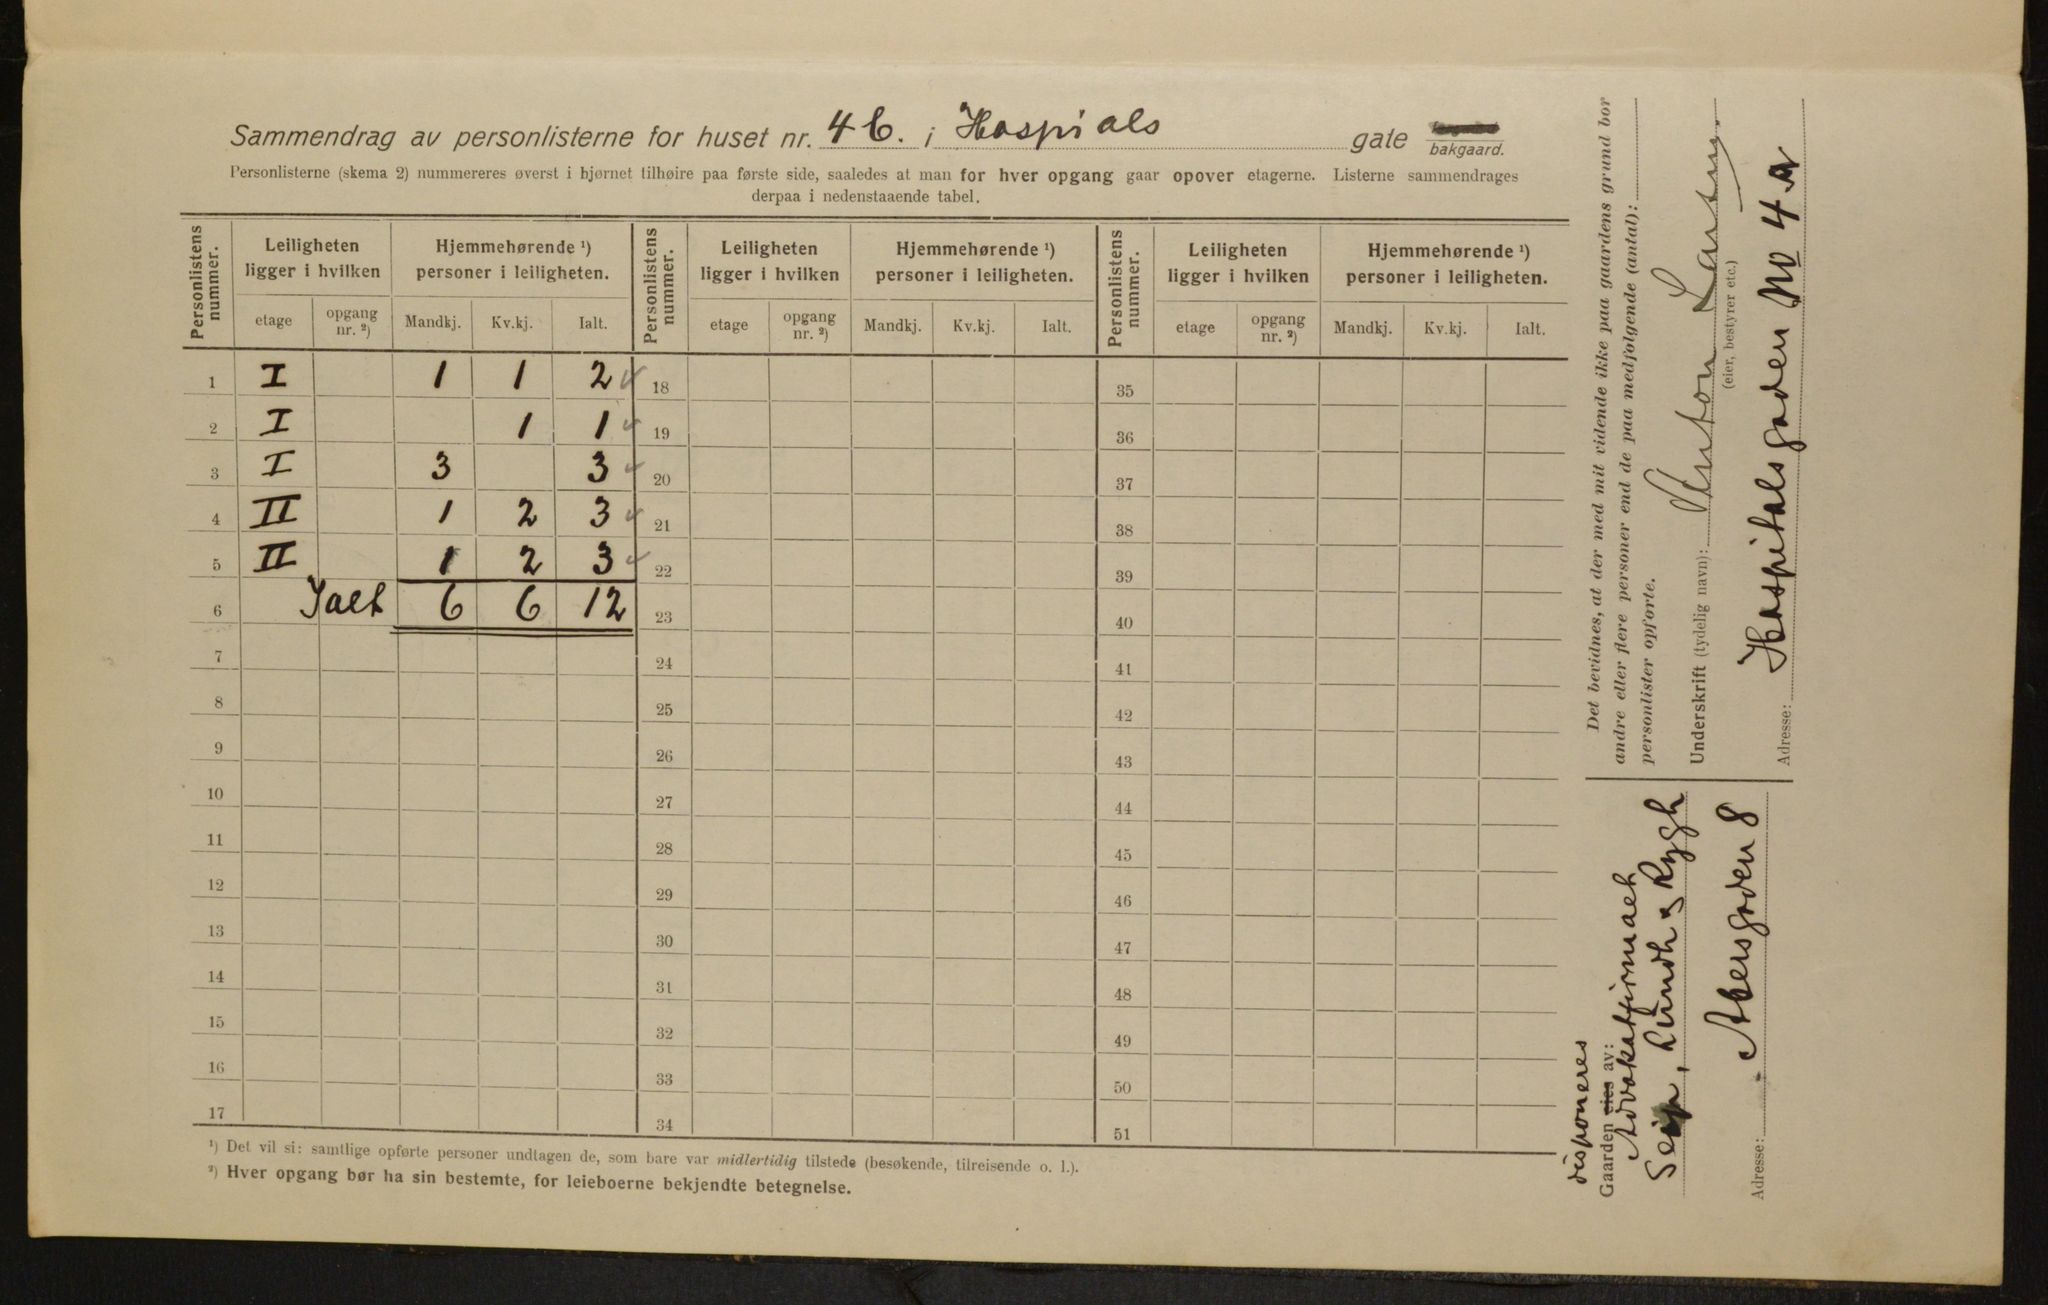 Sammendrag av personlisterne for huset nr. 4 C. i Hospials gate
bakgaard.
Personlisterne (skema 2) nummereres øverst i hjørnet tilhøire paa første side, saaledes at man for hver opgang gaar opover etagerne. Listerne sammendrages
derpaa i nedenstaaende tabel.
Personlistens nummer. Leiligheten ligger i hvilken Hjemmehørende ¹) personer i leiligheten. Personlistens nummer. Leiligheten ligger i hvilken Hjemmehørende ¹) personer i leiligheten. Personlistens nummer. Leiligheten ligger i hvilken Hjemmehørende ¹) personer i leiligheten.
etage opgang nr. ²) Mandkj. Kv.kj. Ialt. etage opgang nr. ²) Mandkj. Kv.kj. Ialt. etage opgang nr. ²) Mandkj. Kv.kj. Ialt.
1 I 1 1 2 18 35
2 I 1 1 19 36
3 I 3 3 20 37
4 II 1 2 3 21 38
5 II 1 2 3 22 39
6 Ialt 6 6 12 23 40
7 24 41
8 25 42
9 26 43
10 27 44
11 28 45
12 29 46
13 30 47
14 31 48
15 32 49
16 33 50
17 34 51
¹) Det vil si: samtlige opførte personer undtagen de, som bare var midlertidig tilstede (besøkende, tilreisende o. l.).
²) Hver opgang bør ha sin bestemte, for leieboerne bekjendte betegnelse.
Det bevidnes, at der med mit vidende ikke paa gaardens grund bor
andre eller flere personer end de paa medfølgende (antal):
personlister opførte.
Underskrift (tydelig navn): Anton Larsen.
(eier, bestyrer etc.)
Adresse: Hospitalsgaden No 4 a
disponeres
Gaarden eies av:
Advokatfirmaet
Seip, Lundh & Rygh
Adresse: Akersgaden 8